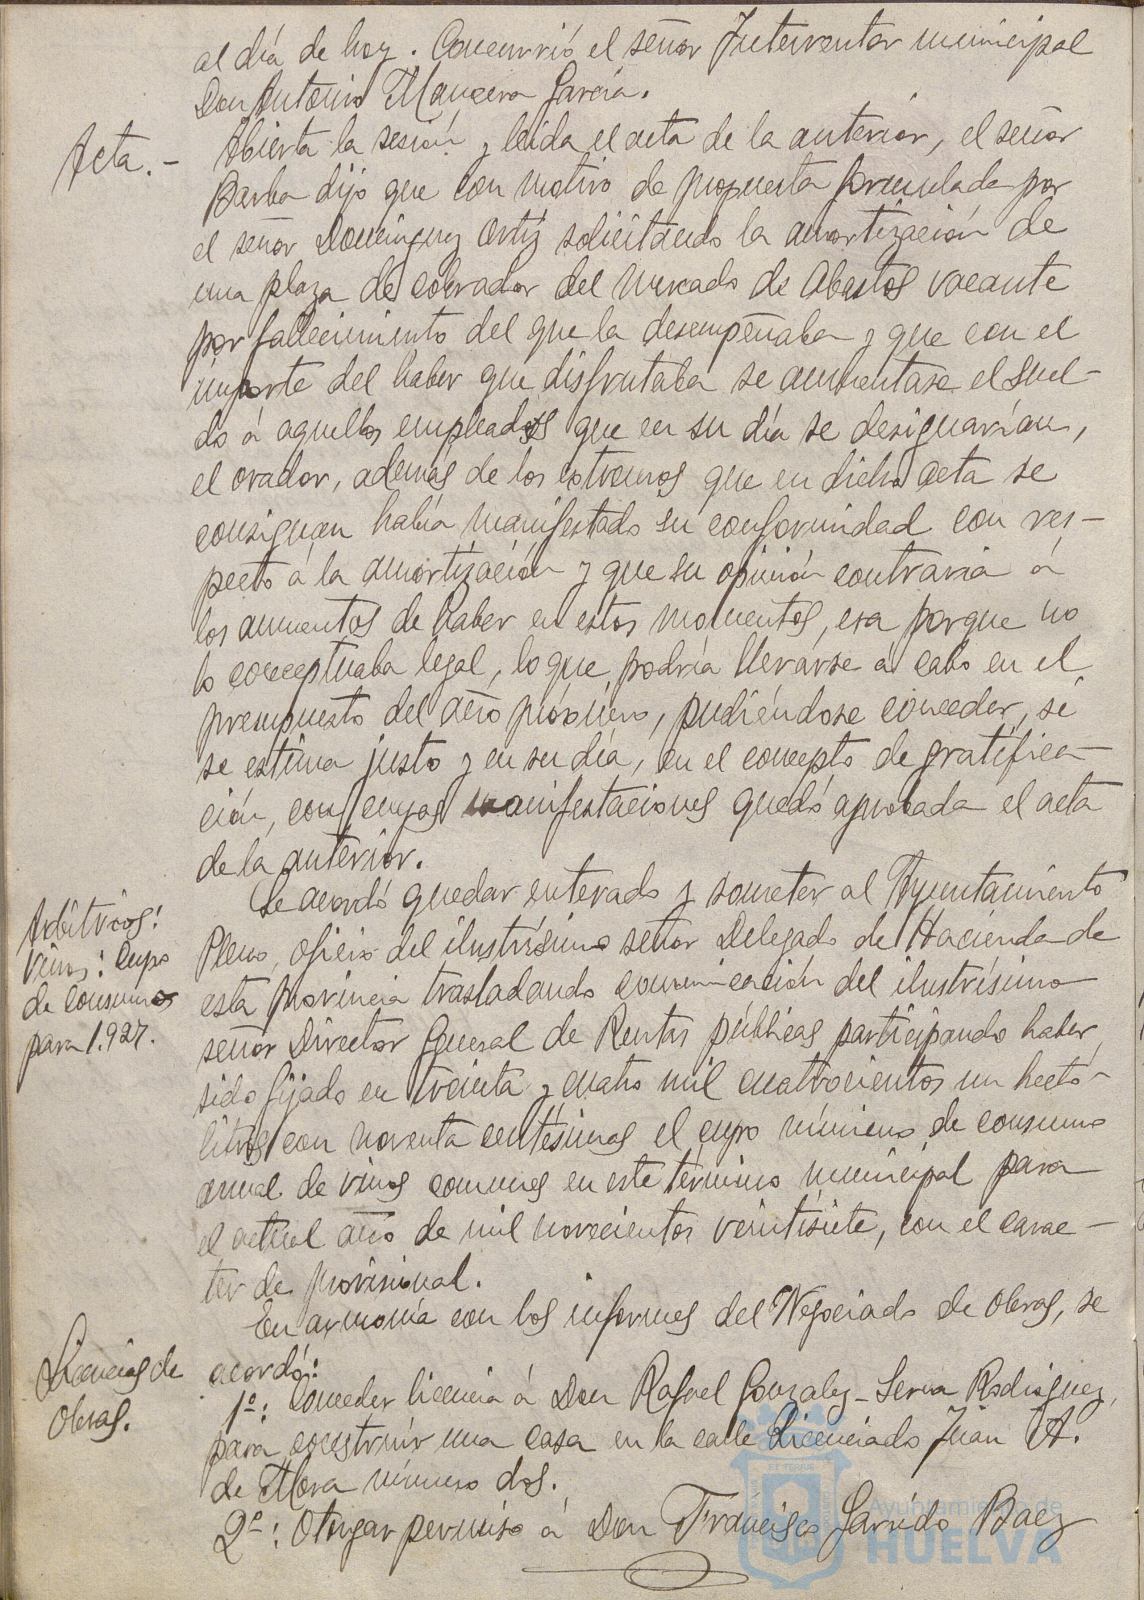 al día de hoy. Concurrió el señor Interventor municipal
Don Antonio Mancera García.
Acta.-
Abierta la sesión y leida el acta de la anterior, el señor
Barba dijo que con motivo de propuesta formulada por
el señor Dominguez Ortiz solicitando la amortización de
una plaza de cobrador del Mercado de Abastos vacante
por fallecimiento del que la desempeñaba y que con el
importe del haber que disfrutaba se aumentase el suel-
do á aquellos empleados que en su día se designarían,
el orador, además de los extremos que en dicha acta se
consignan había manifestado su conformidad con res-
pecto á la amortización y que su opinión contraria á
los aumentos de haber en estos momentos, era porque no
lo conceptuaba legal, lo que podría llevarse á cabo en el
presupuesto del año próximo, pudiéndose conceder, si
se estima justo y en su día, en el concepto de gratifica-
ción, con cuyas manifestaciones quedó aprobada el acta
de la anterior.
Arbitrios:
vinos: Cupo
de consumo
para 1.927.
Se acordó quedar enterado y someter al Ayuntamiento
Pleno, oficio del ilustrísimo señor Delegado de Hacienda de
esta provincia trasladando comunicación del ilustrísimo
señor Director General de Rentas públicas participando haber
sido fijado en treinta y cuatro mil cuatrocientos un hectó-
litros con noventa centésimas el cupo mínimo de consumo
anual de vinos comunes en este término municipal para
el actual año de mil novecientos veintisiete, con el carac-
ter de provisional.
Licencias de
Obras.
En armonía con los informes del Negociado de Obras, se
acordó:
1º: Conceder licencia á Don Rafael Gonzalez-Serna Rodriguez,
para construir una casa en la calle Licenciado Juan A.
de Mora número dos.
2º: Otorgar permiso á Don Francisco Garrido Baez
Ayuntamiento de
HUELVA